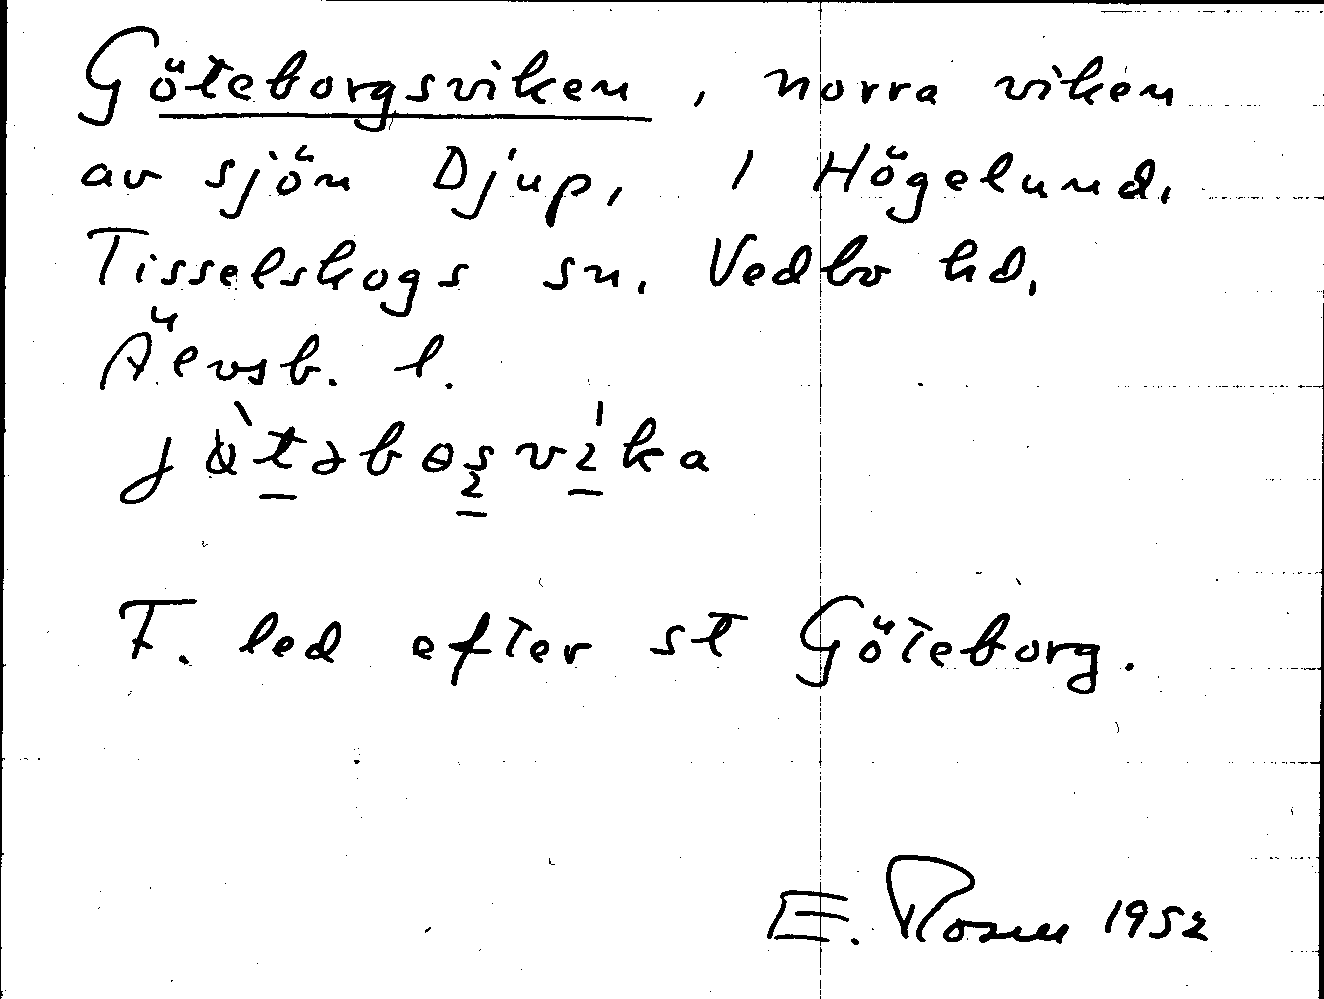 Göteborgsviken, norra viken
av sjön Djup, 1 Högelund,
Tisselskogs sn. Vedbo hd,
Älvsb. l.
F. led efter st Göteborg.
E. Rosen 1952